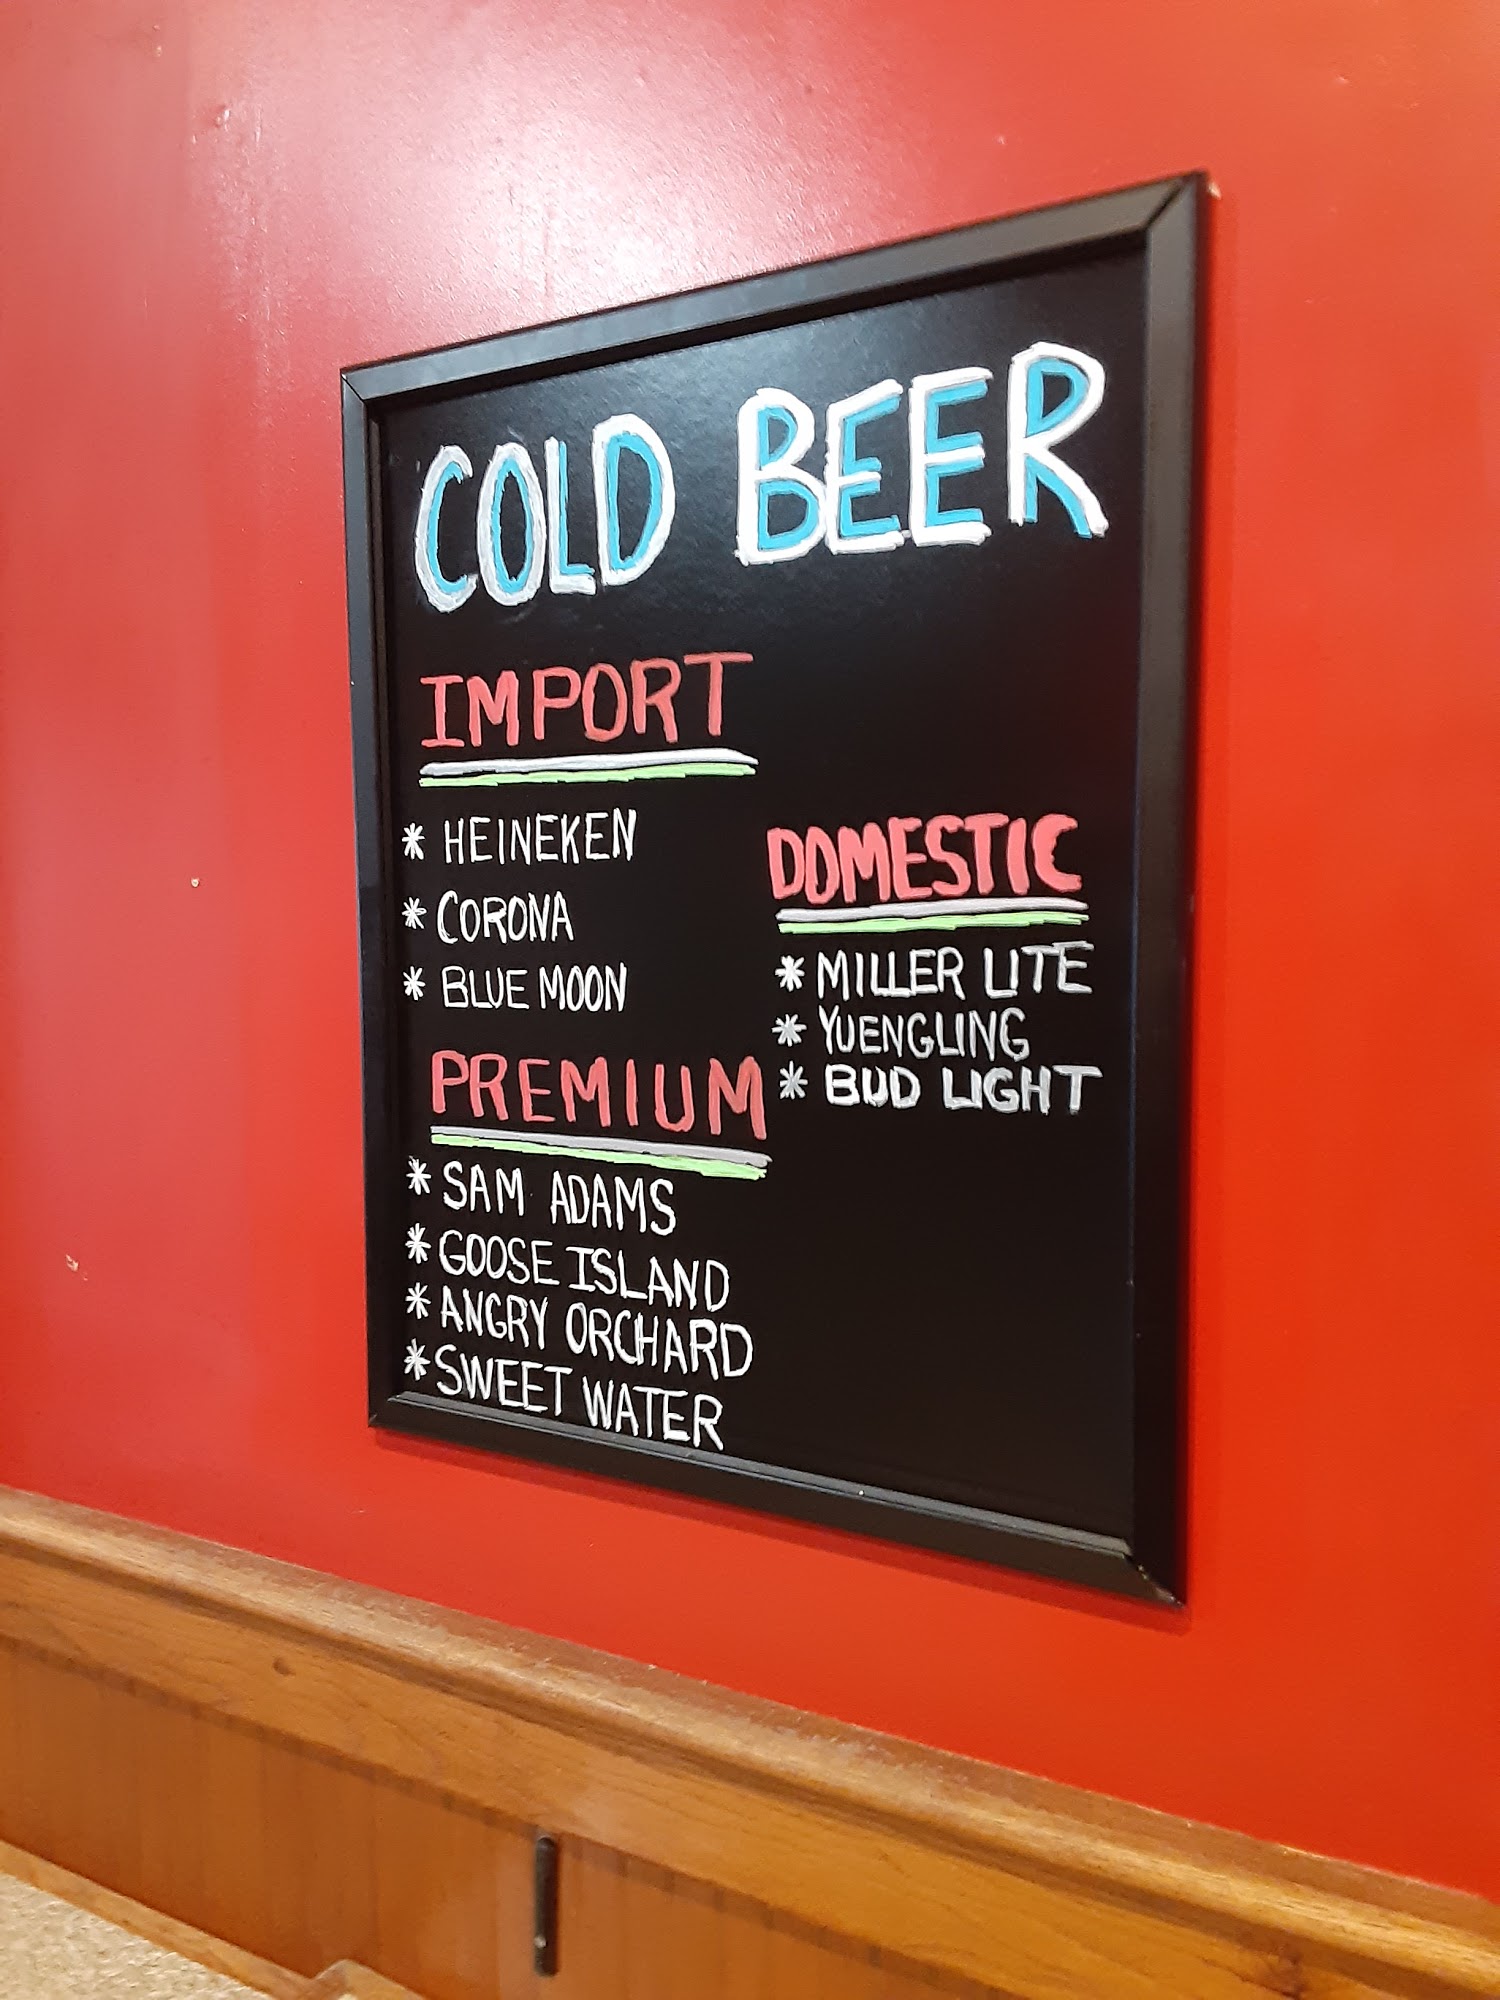 COLD BEER
IMPORT
* HEINEKEN
* CORONA
* BLUE MOON
PREMIUM
* SAM ADAMS
* GOOSE ISLAND
* ANGRY ORCHARD
* SWEET WATER
DOMESTIC
* MILLER LITE
* YUENGLING
* BUD LIGHT